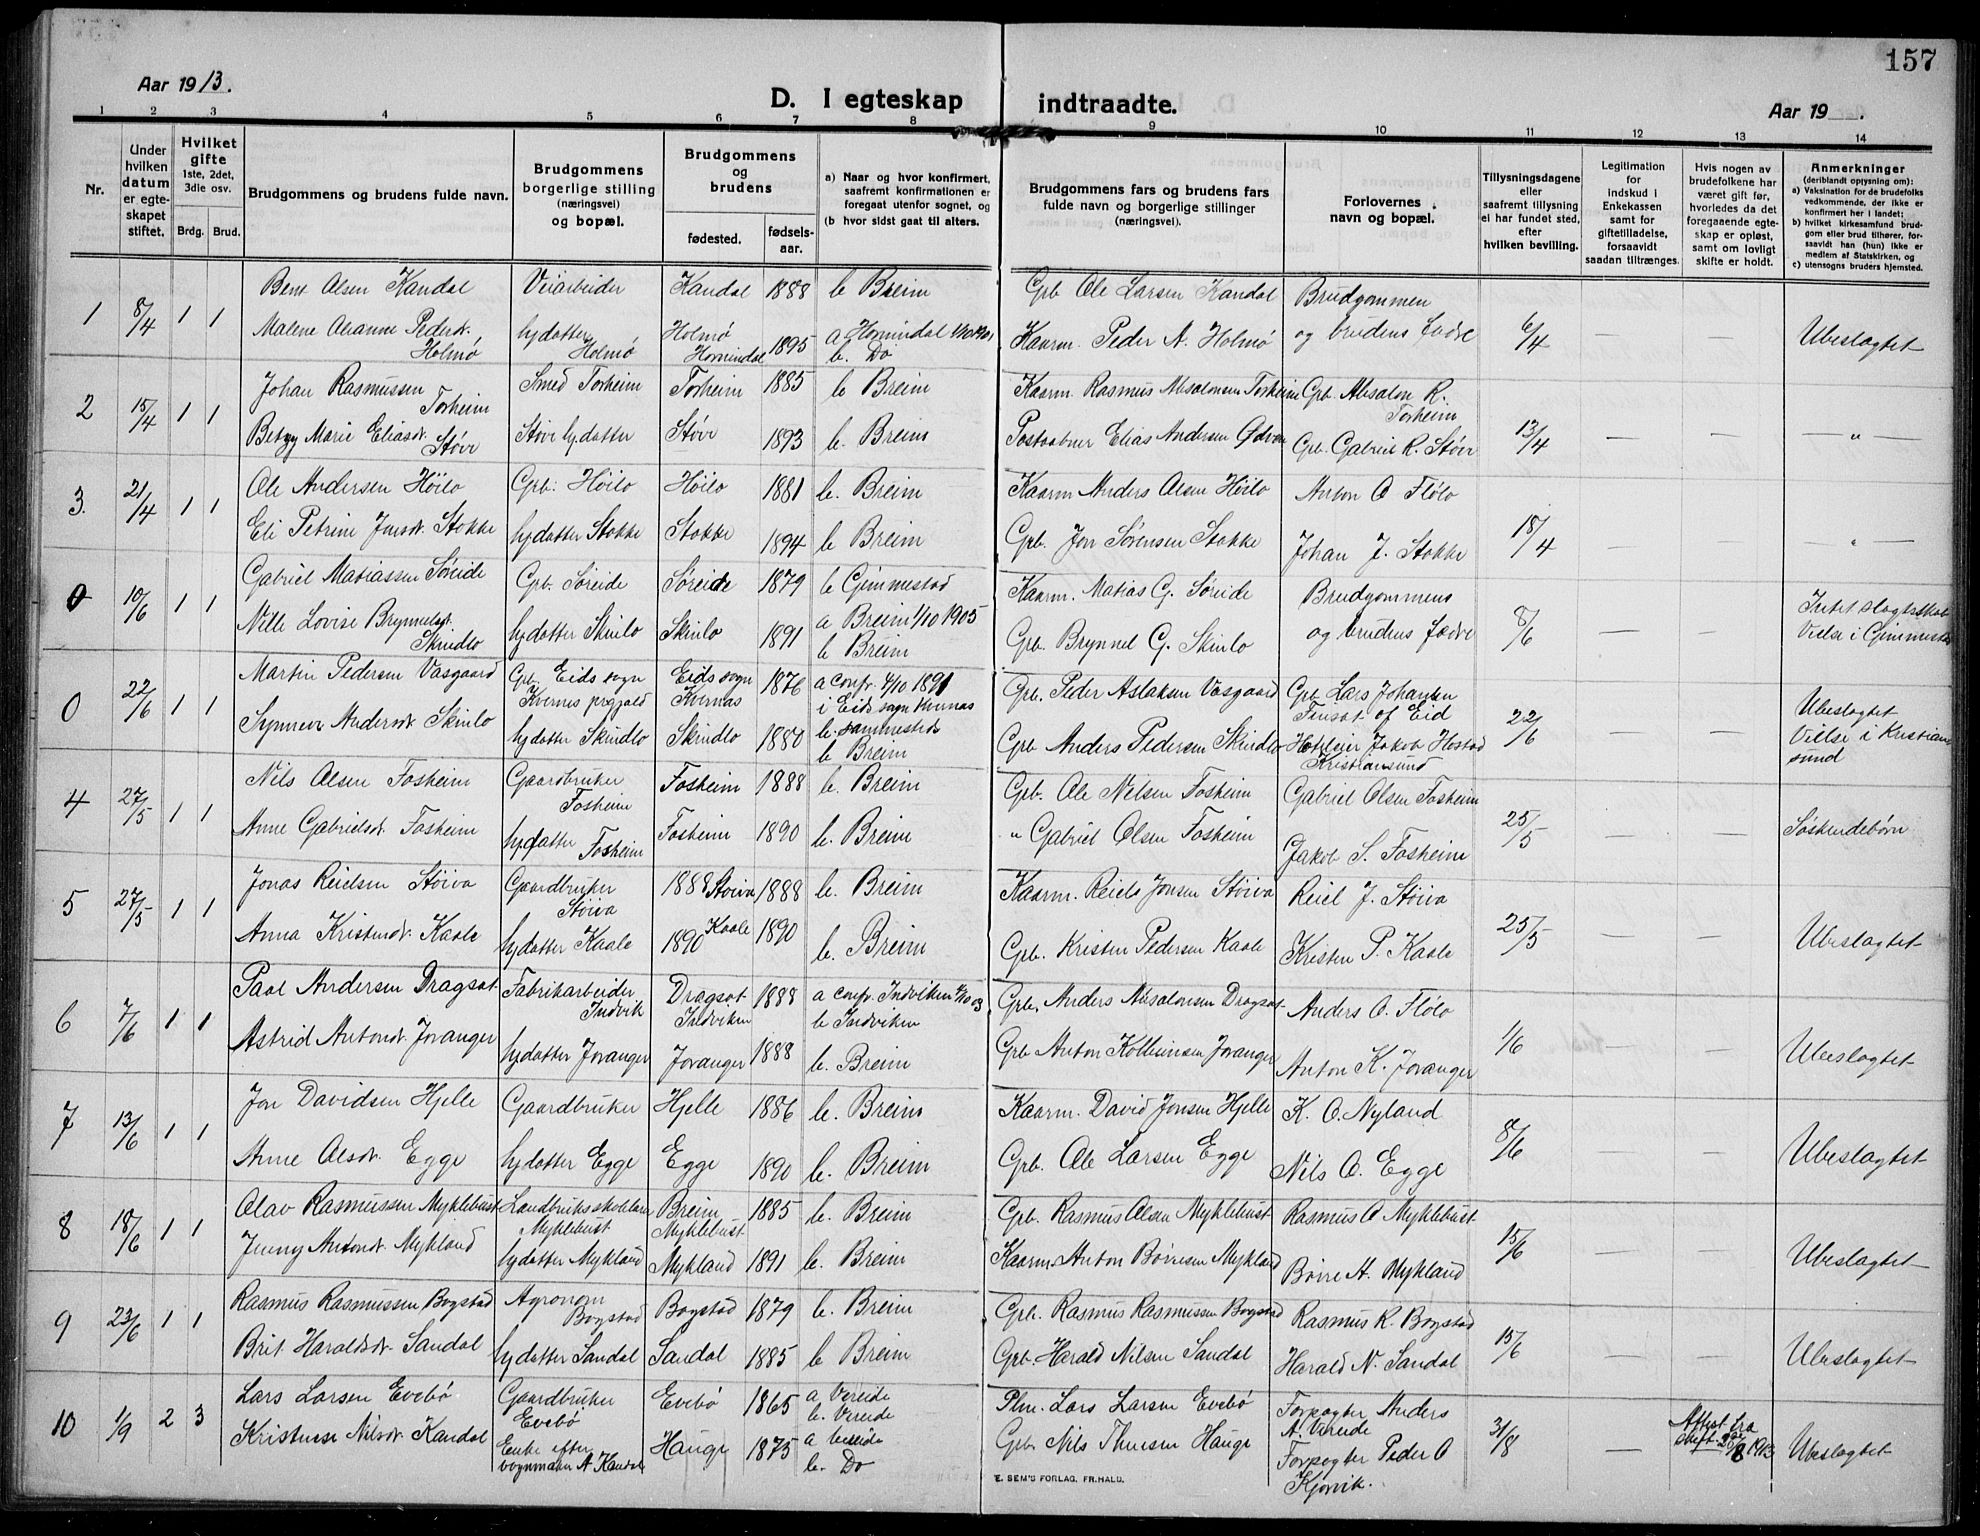 157
Aar 1913.
D. I egteskap indtraadte.
Aar 19 .
1 2 3 4 5 6 7 8 9 10 11 12 13 14
Nr.
Under hvilken datum er egteskapet stiftet.
Hvilket gifte 1ste, 2det, 3die osv.
Brdg. Brud.
Brudgommens og brudens fulde navn.
Brudgommens borgerlige stilling (næringsvei) og bopæl.
Brudgommens og brudens
fødested. fødselsaar.
a) Naar og hvor konfirmert, saafremt konfirmationen er foregaat utenfor sognet, og
(b hvor sidst gaat til alters.
Brudgommens fars og brudens fars fulde navn og borgerlige stillinger (næringsvei).
Forlovernes navn og bopæl.
Tillysningsdagene eller saafremt tillysning ei har fundet sted, efter hvilken bevilling.
Legitimation for indskud i Enkekassen samt for giftetilladelse, forsaavidt saadan tiltrænges.
Hvis nogen av brudefolkene har været gift før, hvorledes da det foregaaende egteskap er opløst, samt om lovligt skifte er holdt.
Anmerkninger (deriblandt opjysning om):
a) Vaksination for de brudefolks vedkommende, der ikke er konfirmert her i landet;
b) hvilket kirkesamfund brudgom eller brud tilhører, forsaavidt han (hun) ikke er medlem af Statskirken, og
c) utensogns bruders hjemsted.
1 8/4 1 1 Bent Olsen Kandal Veiarbeider Kandal 1888 b Breim Grb Ole Larsen Kandal Brudgommen
Malene Oleanne Pedersdt. Holmø hj datter Holmø Holmø Hornindal 1895 a Hornindal b. Do Kaarm. Peder A. Holmø og brudens fædre 6/4 — — Ubeslagtet
2 15/4 1 1 Johan Rasmussen Torheim Smed Torheim Torheim 1885 b Breim Kaarm. Rasmus Absalonsen Torheim Grb. Absalon R. Torheim
Betzy Marie Eliasdt. Støve Støve hj datter Støve 1893 b. Breim Postaabner Elias Andersen Grb. Gabriel R. Støve 13/4 — — — " —
3. 21/4 1 1 Ole Andersen Høilo Grb. Høilo Høilo 1881 b. Breim Kaarm Anders Olsen Høilo Anton O Fløло
Eli Petrine Jonsdt. Stokke hj datter Stokke Stokke 1894 b Breim Grb. Jon Sørensen Stokke Johan J. Stokke 18/4 — — — " —
0 10/6 1 1 Gabriel Matiassen Søreide Grb. Søreide Søreide 1879 b Gimmestad Kaarm. Matias G. Søreide Brudgommens
Nille Lovise Brynnelsdt. Skindlo hj datter Skinlo Skinlo 1891 a Breim 1/10 1905 b Breim Grb. Brynnel G. Skinlo og brudens fædre 8/6 — — Intet slagtskab Vielse i Gimmestad
0 22/6 1 1 Martin Pedersen Vasgaard Grb. Eids sogn Kvernes prgjæld Eids sogn Kvernæs 1876 a conf. 4/10 1891 i Eids sogn Kvernæs b. sammesteds Grb. Peder Aslaksen Vasgaard Grb Lars Johansen of Eid
Synneve Andersdt. Skinlo hj datter Skindlo Skindlo 1880 b Breim Grb Anders Pedersen Skindlo Hoteleier Jakob Hostad Kristiansund 22/6 — — Ubeslagtet Vielse i Kristiansund
4 27/5 1 1 Nils Olsen Fosheim Gaardbruker Fosheim Fosheim 1888 b. Breim Grb. Ole Nelsen Fosheim Gabriel Olsen Fosheim
Anne Gabrielsdt. Fosheim hj datter Fosheim Fosheim 1890 b. Breim " Gabriel Olsen Fosheim Jakob S. Fosheim 25/5 — — Søskendebørn
5 27/5 1 1 Jonas Reielsen Støiva Gaardbruker Støiva 1888 Støiva 1888 b. Breim Kaarm. Reiel Jonsen Støiva Reiel J. Støiva
Anna Kristensdt. Kaale hj datter Kaale 1890 Kaale 1890 b. Breim Grb. Kristen Pedersen Kaale Kristen P. Kaale 25/5 — — Ubeslagtet
6 7/6 1 1 Paul Andersen Dragsæt Fabrikarbeider Indvik Dragsæt Indviken 1888 a conf. Indviken b Indviken Grb. Anders Absalonsen Dragsæt Anders O. Fløло
Astrid Antondt. Joranger hj datter Joranger Joranger 1888 b. Breim Grb Anton Joranger Anton K. Joranger 1/6 — — Ubeslagtet
7 13/6 1 1 Jon Davidsen Hjelle Gaardbruker Hjelle 1886 b. Breim Kaarm. David Jonsen Hjelle K. O. Nyland
Anne Olesdt. Egge hj datter Egge Egge 1890 b. Breim Grb. Ole Larsen Egge Nils O. Egge 8/6 — — Ubeslagtet
8 18/6 1 1 Olav Rasmussen Myklebust Landbruksskolelærer Myklebust Breim Myklebust 1885 b. Breim Grb. Rasmus Olsen Myklebust Rasmus O Myklebust
Jenny Antondt. Mykland hj datter Mykland Mykland 1891 b. Breim Kaarm. Anton Børresen Mykland Børre A. Mykland 15/6 — — Ubeslagtet
9 23/6 1 1 Rasmus Rasmussen Bogstad Agronom Bogstad Bogstad 1879 b. Breim Grb. Rasmus Rasmussen Bogstad Rasmus R. Bogstad
Brit Haraldsdt. Sandal hj datter Sandal Sandal 1885 b Breim Grb. Harald Nilsen Sandal Harald N. Sandal 15/6 — — Ubeslagtet
10 1/9 2 3 Lars Larsen Evebø Gaardbruker Evebø Evebø 1865 a Vereide b. Vereide Plm. Lars Larsen Evebø Forpagter Anders A. Vereide
Kristense Nilsdt. Kandal Enke efter vognmann A Kandal Hauge 1875 a Vereide b. Do Grb. Nils Thuesen Hauge Forpagter Peder O Kjorvik. 31/8 — Attest fra skift. 28/8 1913 Ubeslagtet
E. SEM'S FORLAG, FR.HALD.